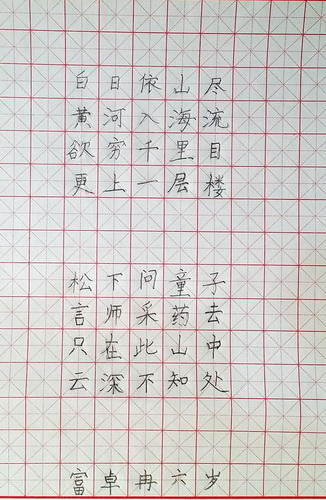 白日依山尽
黄河入海流
欲穷千里目
更上一层楼
松下问童子
言师采药去
只在此山中
云深不知处
富卓冉六岁